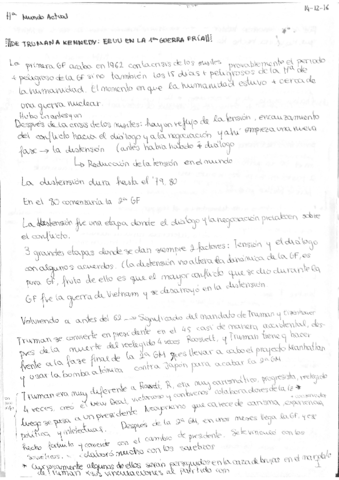 Hª Mundo Actual
14-12-16
DE TRUMAN A KENNEDY: EEUU EN LA 1ª GUERRA FRÍA
La primera GF acaba en 1962 con la crisis de los misiles probablemente el periodo
+ peligroso de la GF sino también los 15 días + peligrosos de la Hª de
la humanidad. El momento en que la humanidad estuvo + cerca de
una guerra nuclear
Hubo
Después de la crisis de los misiles: hay un reflujo de la tensión, encauzamiento
del conflicto hacia el dialogo y a la negociación y ahí empieza una nueva
fase → la distensión (antes había habido + dialogo
↳ Reducción de la tensión en el mundo
La distensión dura hasta el 79, 80
En el 80 comenzaría la 2ª GF
La distensión fue una etapa donde el dialogo y la negociación sobre
el conflicto.
3 grandes etapas donde se dan siempre 2 factores: Tensión y el dialogo
con algunos acuerdos. (La distensión no altera la dinámica de la GF, es
pura GF, fruto de ello es que el mayor conflicto que se dio durante la
GF fue la guerra de Vietnam y se desarrolló en la distensión
Volviendo a antes del 62 → Significado del mandato de Truman y
Truman se convierte en presidente en el 45 casi de manera accidental, des-
pués de la muerte del reelegido 4 veces Roosvelt, y Truman tiene q hacer
frente a la fase final de la 2ª GM pues llevar a cabo el proyecto Manhattan
y usar la bomba atómica contra Japón para acabar la 2ª GM
Truman era muy diferente a Roosvelt R. era muy carismático, progresista, reelegido
4 veces, creó el New Deal,
luego se pasa a un presidente que carece de carisma, experiencia
política, e intelectual. Después de la 2ª GM, en unos meses llega la GF y es
hecho fortuito y coherente con el cambio de presidente. Se
soviéticos. mucho con los soviéticos
* Curiosamente algunos de ellos serán perseguidos en la caza de brujas
Truman sus vinculaciones al partido com